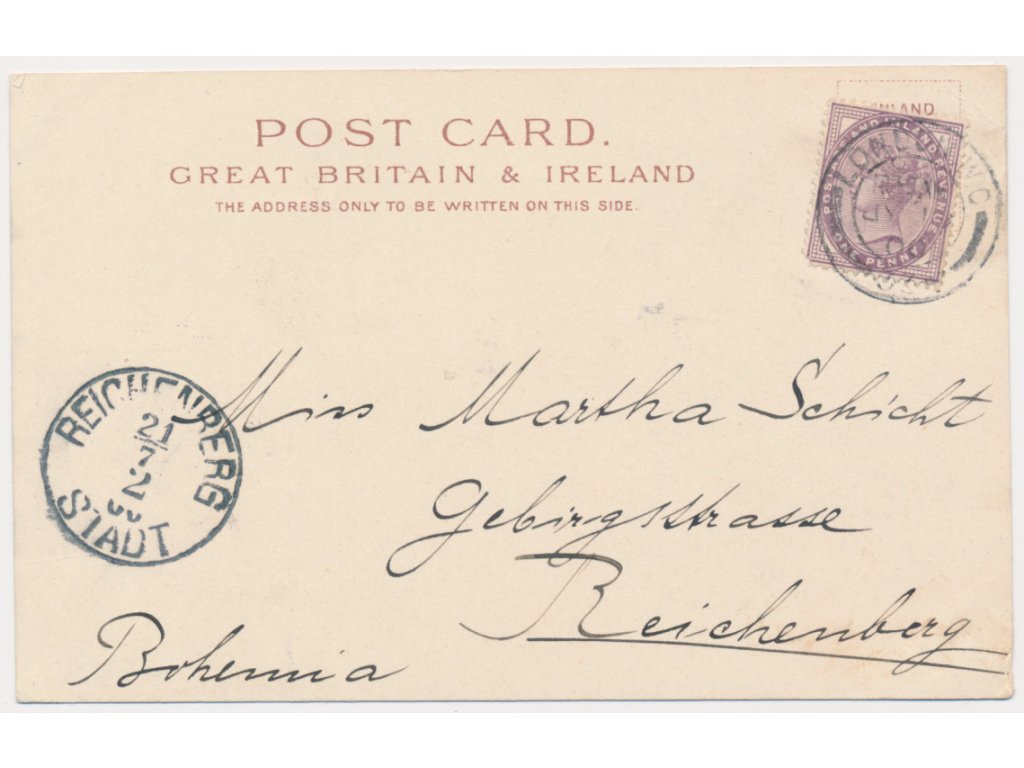 POST CARD.
GREAT BRITAIN & IRELAND
THE ADDRESS ONLY TO BE WRITTEN ON THIS SIDE.
INLAND
POSTAGE AND INLAND REVENUE
ONE PENNY
LONDON W.C
REICHENBERG
21
STADT
Miss Martha Schicht
Gebirgsstrasse
Reichenberg
Bohemia